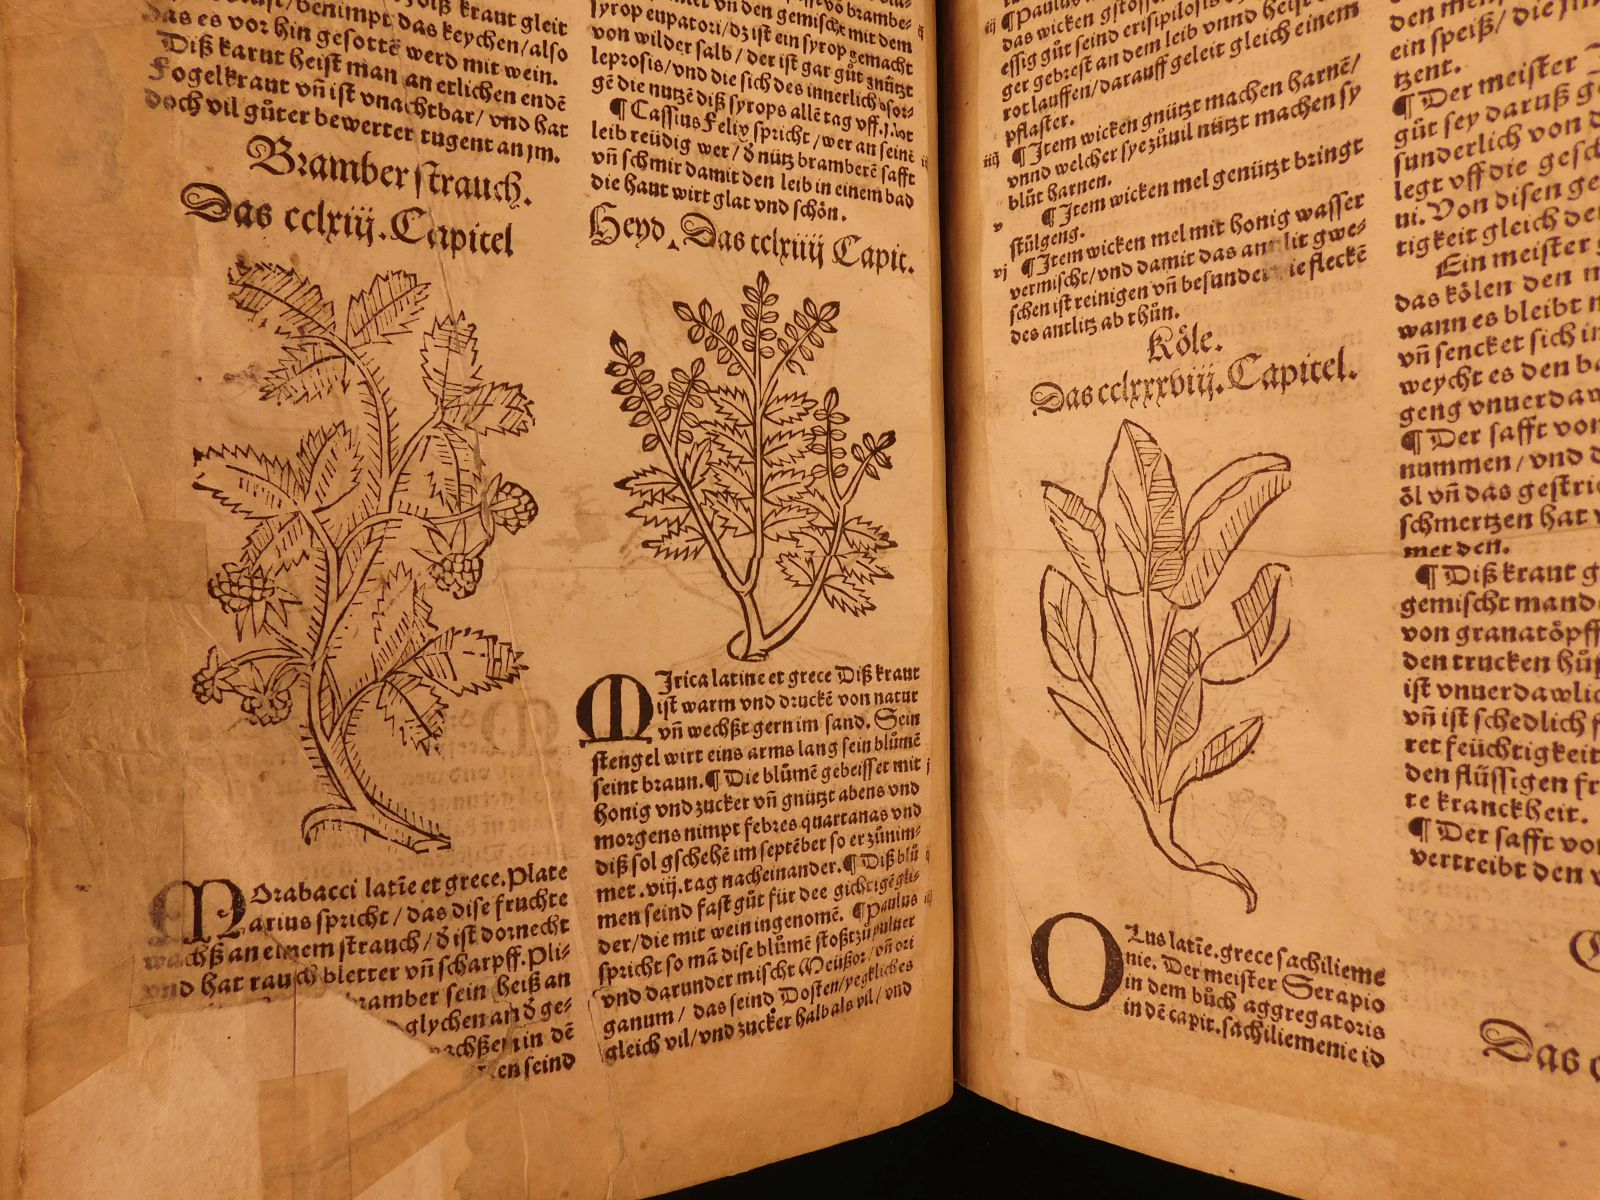 kraut gleit
benimpt das keychen/also
das es vor hin gesottē werd mit wein.
Diß karut heist man an etlichen endē
Fogelkraut vn̄ ist vnachtbar/vnd hat
doch vil gůter bewerter tugent an jm.
Bramber strauch.
Das cclxiij. Capitel
MOrabacci latīe et grece. Plate
arius spricht/das dise fruchte
wachß an einem strauch/ð ist dornecht
vnd hat rauch bletter vn̄ scharpff. Pli-
bramber sein heiß an
glychen an ð ge-
wachßen in dē
en seind
vn̄ den gemischt mit dem
syrop eupatori/dz ist ein syrop gemacht
von wilder salb/der ist gar gůt gnützt
leprosis/vnd die sich des innerlich bsor-
gē die nutzē diß syrops allē tag vff.j.lot
¶ Cassius Felix spricht/wer an seinē
leib reüdig wer/ð nütz bramberē safft
vn̄ schmir damit den leib in einem bad
die haut wirt glat vnd schön.
Heyd. Das cclxiiij Capit.
MIrica latine et grece Diß kraut
ist warm vnd druckē von natur
vn̄ wechßt gern im sand. Sein
stengel wirt eins arms lang sein blůmē
seint braun. ¶ Die blůmē gebeisset mit
honig vnd zucker vn̄ gnützt abens vnd
morgens nimpt febres quartanas vnd
diß sol gschehē im septēber so er zůnim-
met .viij. tag nacheinander. ¶ Diß blů
men seind fast gůt für dee gichtigē gli-
der/die mit wein ingenomē. ¶ Paulus
spricht so mā dise blůmē stoßt zů puluer
vnd darunder mischt Meüßor/vn̄ ori
ganum/das seind Dosten/yegkliches
gleich vil/vnd zucker halb als vil/vnd
iij ¶ Paulus
das wicken gstossen
essig gůt seind erisipilosis
ger gebrest an dem leib vnnd heist
rot lauffen/darauff geleit gleich einem
pflaster.
iiij ¶ Item wicken gnützt machen harnē/
vnnd welcher sye zůuil nützt machen sy
blůt harnen.
v ¶ Item wicken mel genützt bringt
stůlgeng.
vj ¶ Item wicken mel mit honig wasser
vermischt/vnd damit das antlit gwe-
schen ist reinigen vn̄ besunder die fleckē
des antlitz ab thůn.
Kőle.
Das cclxxxviij. Capitel.
OLus latīe. grece sachilieme
nie. Der meister Serapio
in dem bůch aggregatoris
in dē capit. sachiliemenie id
ein speiß/die
tzent.
¶ Der meister
gůt sey daruß
sunderlich von
legt vff die
ni. Von disen
tigkeit gleich
Ein meister
das kölen den
wann es bleibt
vn̄ sencket sich
weycht es den
geng vnuerdaw
¶ Der safft von
nummen/vnd
öl vn̄ das
schmertzen hat
met den.
¶ Diß kraut
gemischt
von granatöpff
den trucken
ist vnuerdawlich
vn̄ ist schedlich
ret feüchtigkeit
den flüssigen
te kranckheit.
¶ Der safft von
vertreibt den
Das